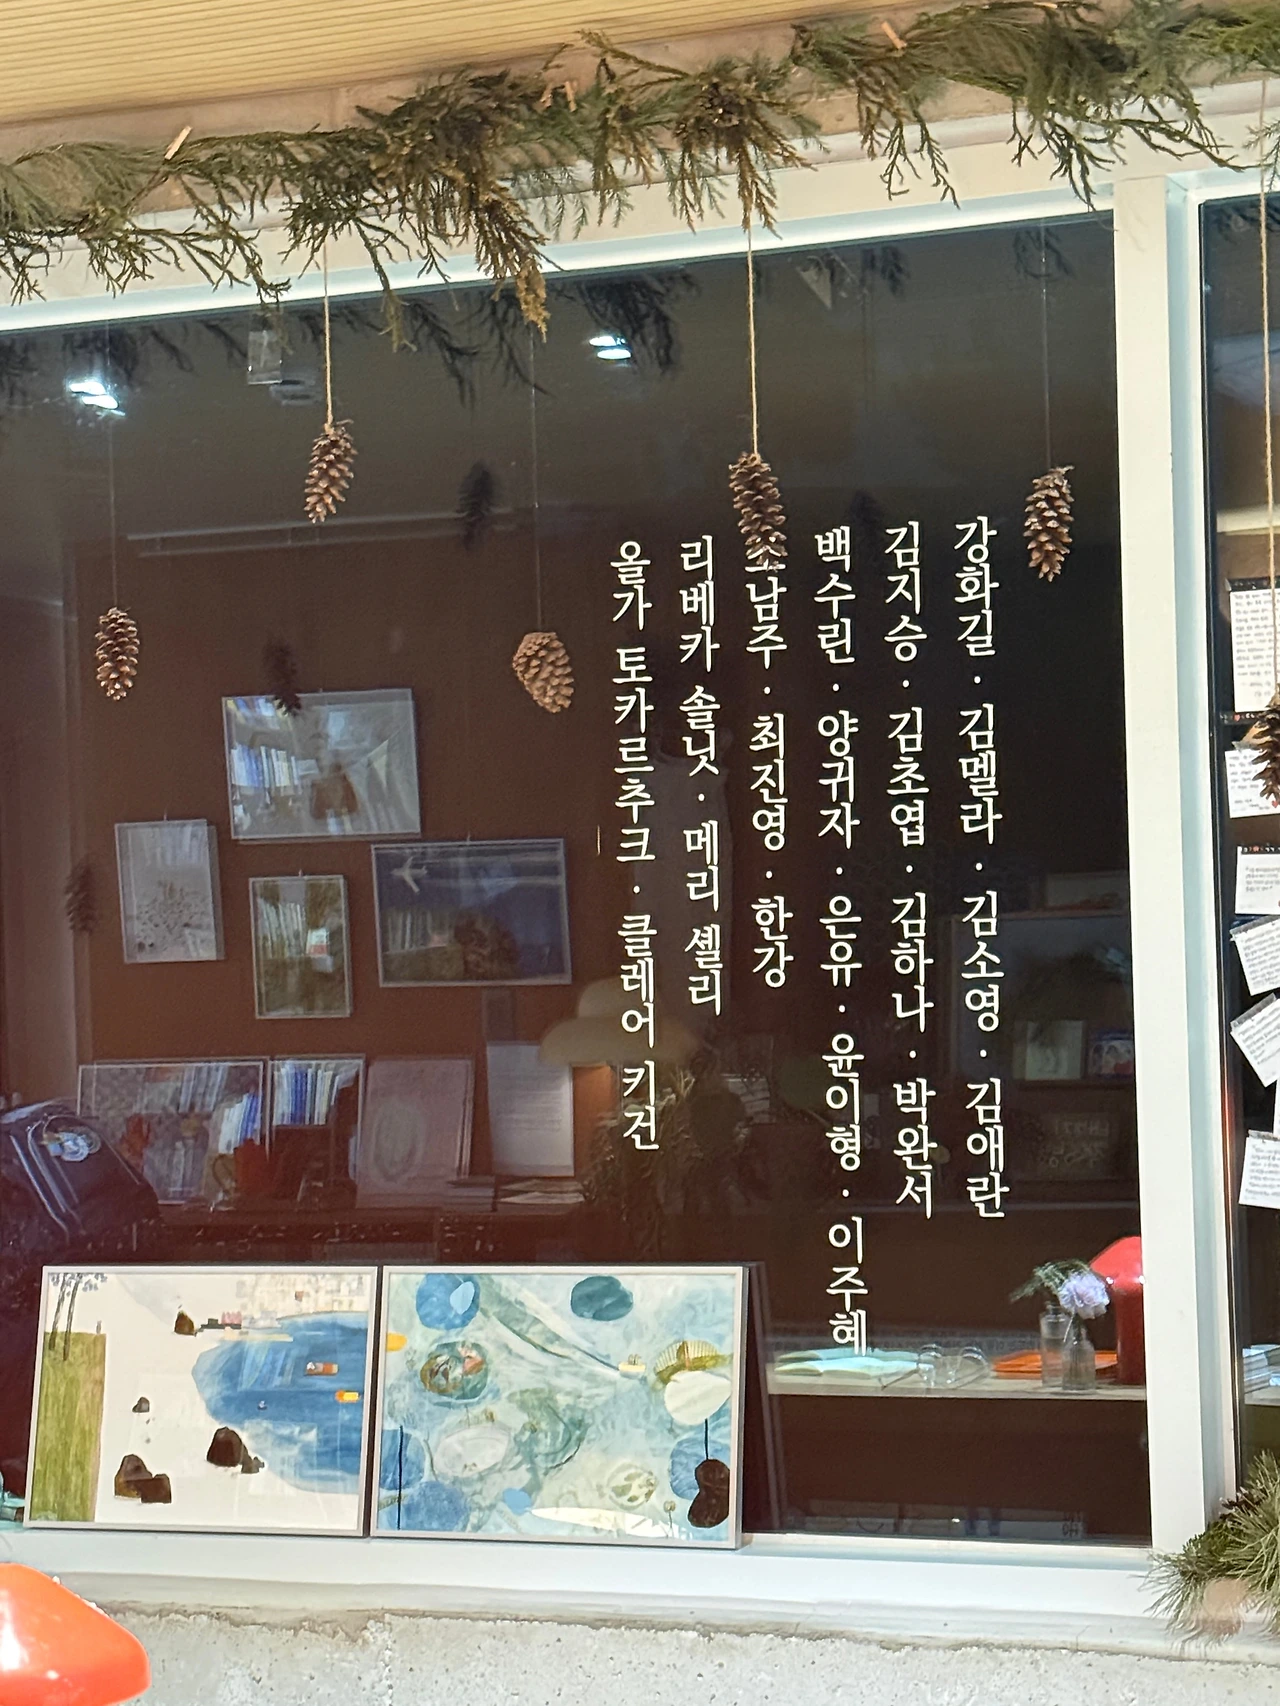 강화길 · 김멜라 · 김소영 · 김애란
김지승 · 김초엽 · 김하나 · 박완서
백수린 · 양귀자 · 은유 · 윤이형 · 이주혜
조남주 · 최진영 · 한강
리베카 솔닛 · 메리 셸리
올가 토카르추크 · 클레어 키건